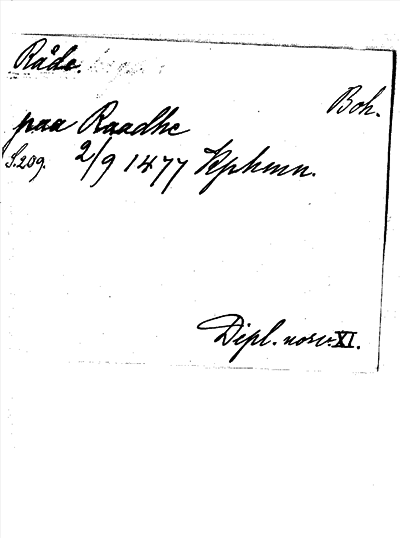 Råde.
Boh.
paa Raadhe
S.209. 2/9 1477 Kphmn.
Dipl. norv. XI.